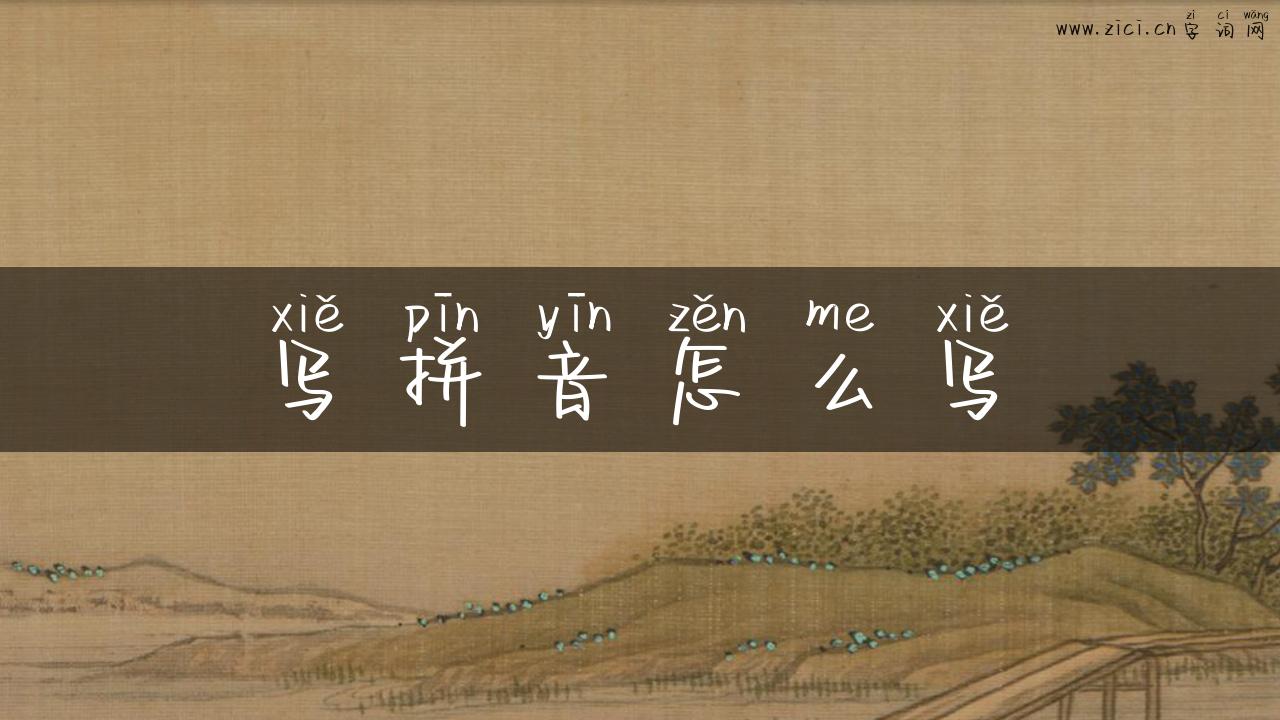 zì cí wǎng
www.zici.cn 字 词 网
xiě pīn yīn zěn me xiě
写 拼 音 怎 么 写